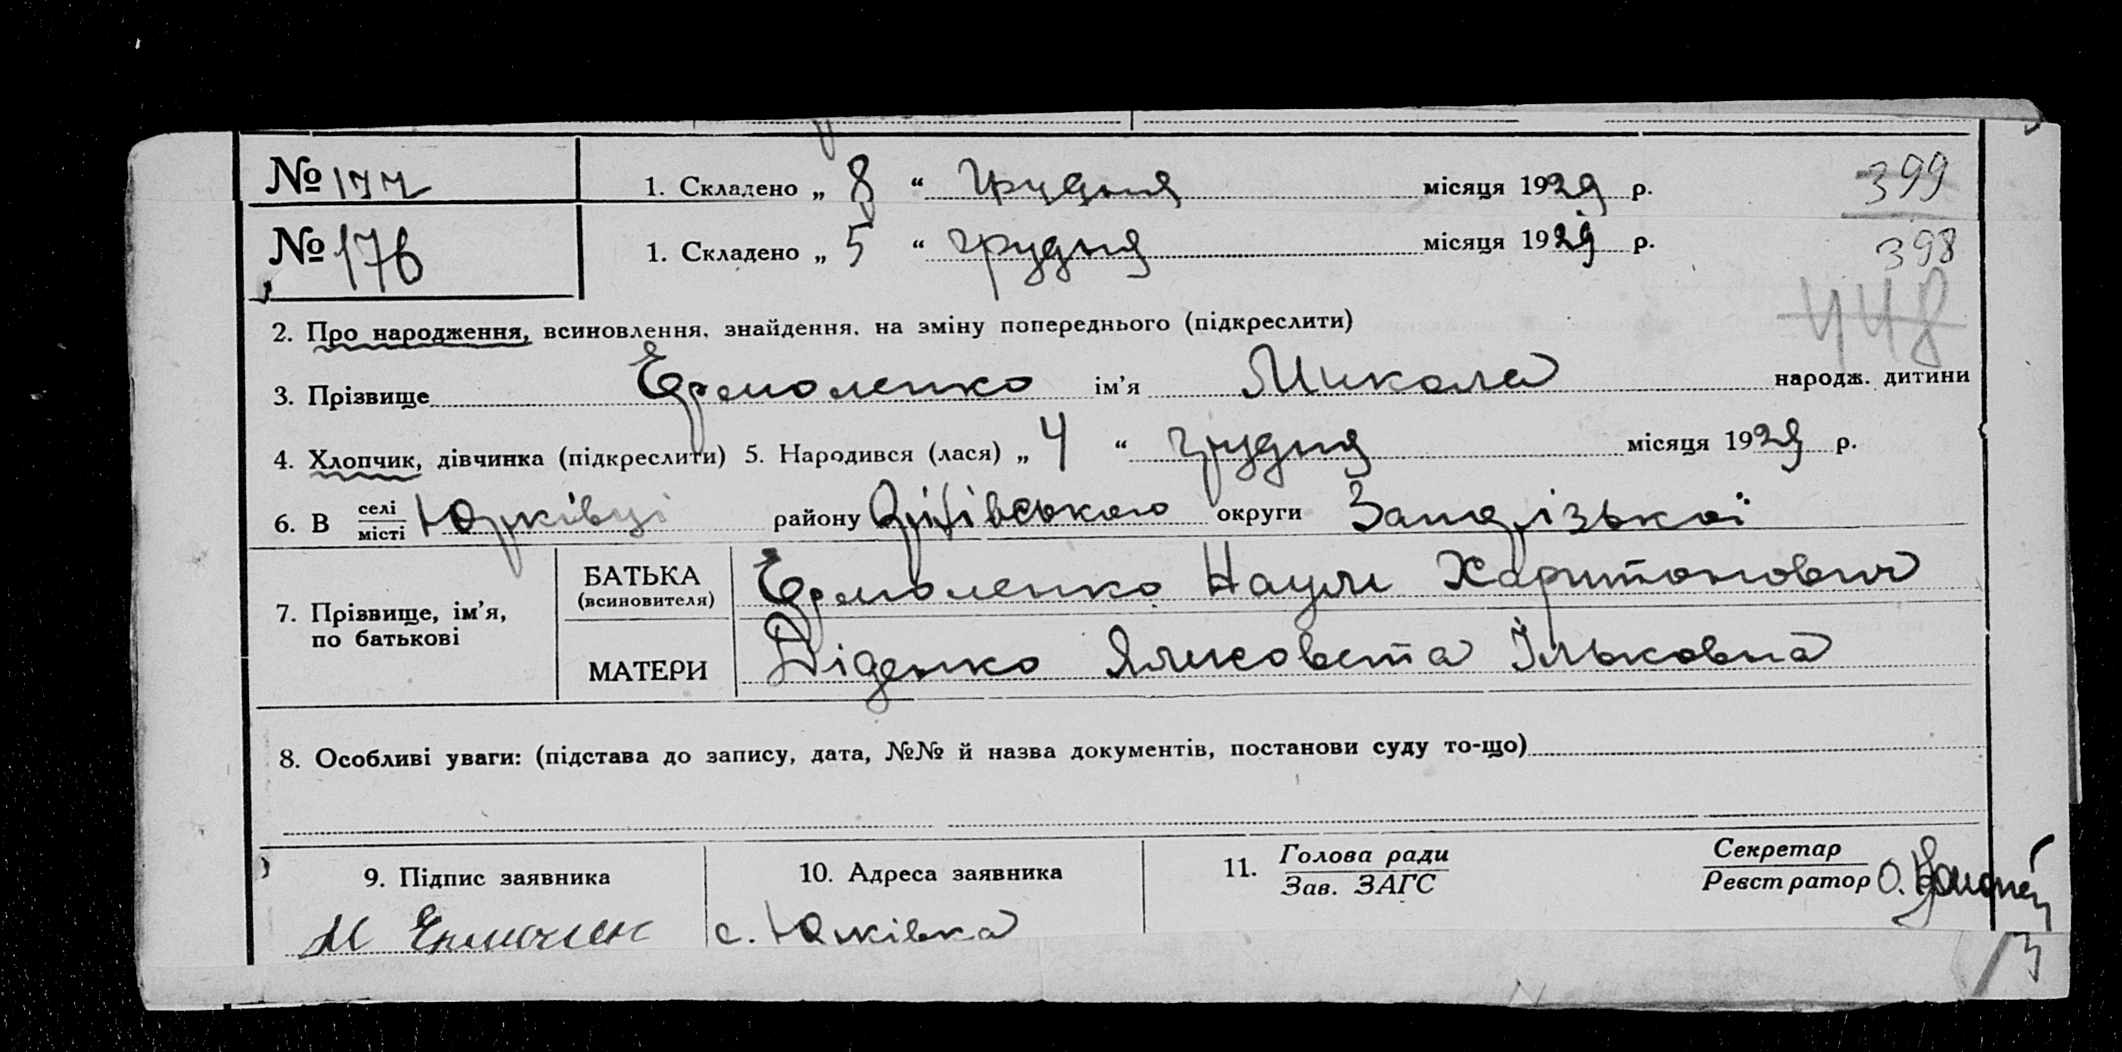 № 177 1. Складено „ 8 “ грудня місяця 1929 р. 399
№ 176 1. Складено „ 5 “ грудня місяця 1929 р. 398
448
2. Про народження, всиновлення, знайдення, на зміну попереднього (підкреслити)
3. Прізвище Ермоленко ім’я Микола народж. дитини
4. Хлопчик, дівчинка (підкреслити) 5. Народився (лася) „ 4 “ грудня місяця 1929 р.
6. В селі місті Юрківці району Оріхівського округи Запорізької
7. Прізвище, ім’я, по батькові
БАТЬКА (всиновителя) Ермоленко Наум Харитонович
МАТЕРИ Діденко Яликовета Ільковна
8. Особливі уваги: (підстава до запису, дата, №№ й назва документів, постанови суду то-що)
9. Підпис заявника 10. Адреса заявника 11. Голова ради Зав. ЗАГС Секретар Реєстратор О.
с. Юрківка